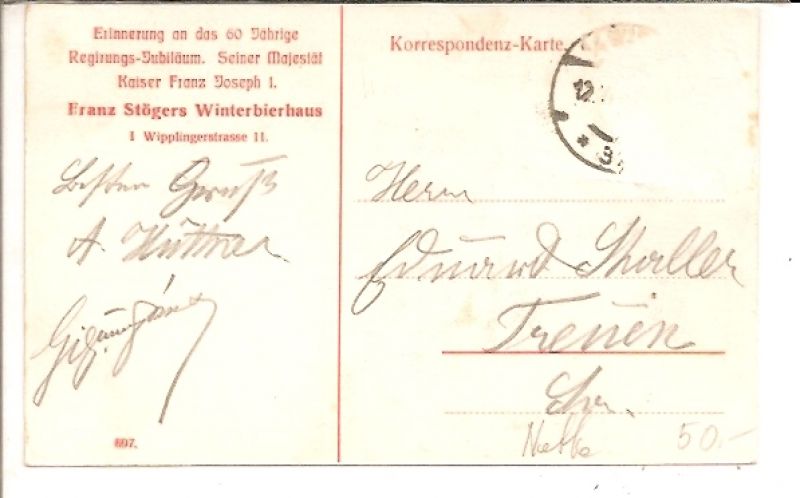 Erinnerung an das 60 Jährige
Regirungs-Jubiläum. Seiner Majestät
Kaiser Franz Joseph I.
Franz Stögers Winterbierhaus
I Wipplingerstrasse 11.
Besten Gruß
A. Hüttner
697.
Korrespondenz-Karte.
12.
* 3
Herrn
Eduard
Treuen
50.-